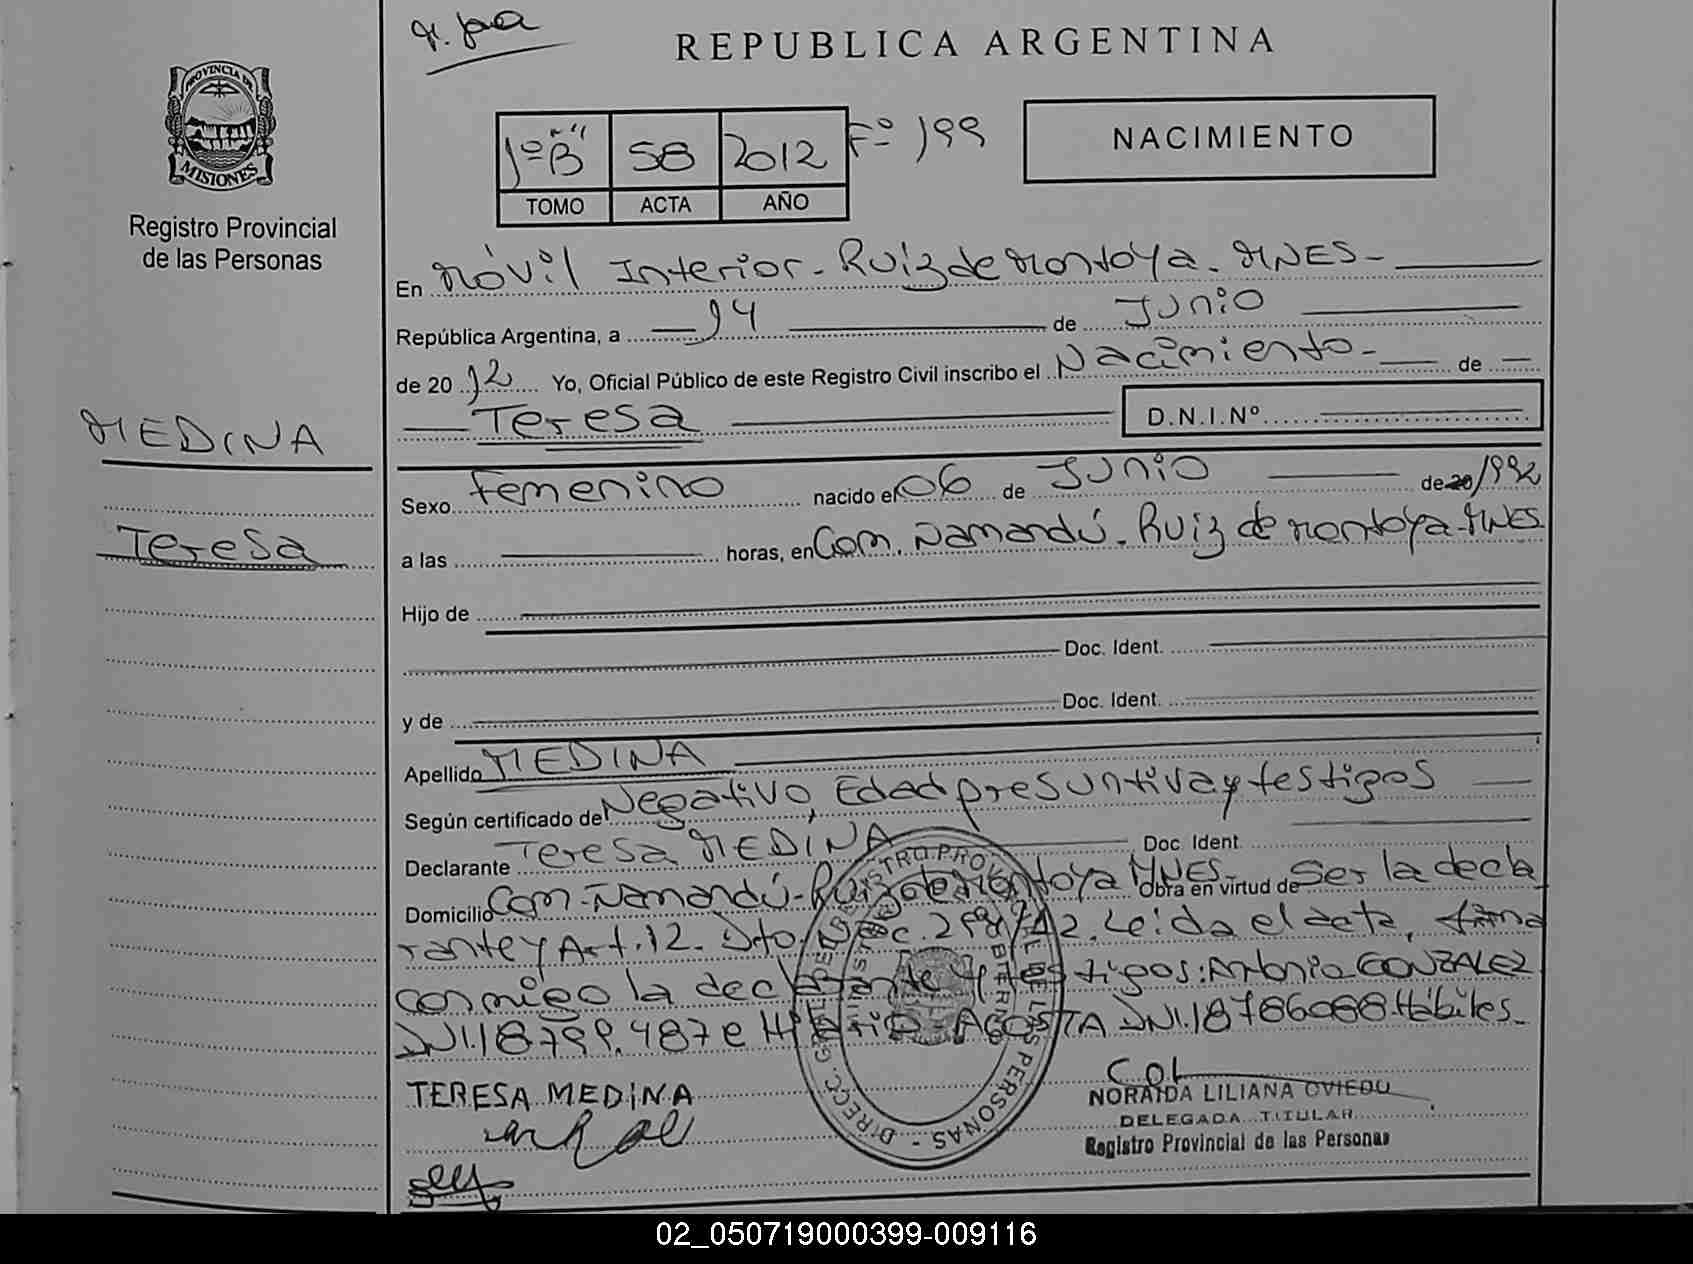 REPUBLICA ARGENTINA
PROVINCIA DE
MISIONES
Registro Provincial
de las Personas
1º "B" 58 2012 Fº 199
TOMO ACTA AÑO
NACIMIENTO
En Móvil Interior - Ruiz de Montoya - MNES -
República Argentina, a 14 de Junio
de 2012 Yo, Oficial Público de este Registro Civil inscribo el Nacimiento - de
Teresa D.N.I.Nº
MEDINA
Teresa
Sexo Femenino nacido el 06 de Junio de 20 1992
a las horas, en Com. Ñamandú - Ruiz de Montoya - MNES
Hijo de
Doc. Ident.
y de Doc. Ident.
Apellido MEDINA
Según certificado de Negativo, Edad presuntiva y testigos
Declarante Teresa MEDINA Doc Ident.
Domicilio Com. Ñamandú - Ruiz de Montoya MNES - Obra en virtud de Ser la decla
rante y Art. 12. Dto. Leída el acta, firma
conmigo la declarante y testigos: Antonio GONZALEZ
DNI.18799.487 e Hilario ACOSTA DNI.18786088. Hábiles.
TERESA MEDINA
NORAIDA LILIANA OVIEDO
DELEGADA TITULAR
Registro Provincial de las Personas
DIRECC. GRAL. DEL REGISTRO PROVINCIAL DE LAS PERSONAS -
02_050719000399-009116